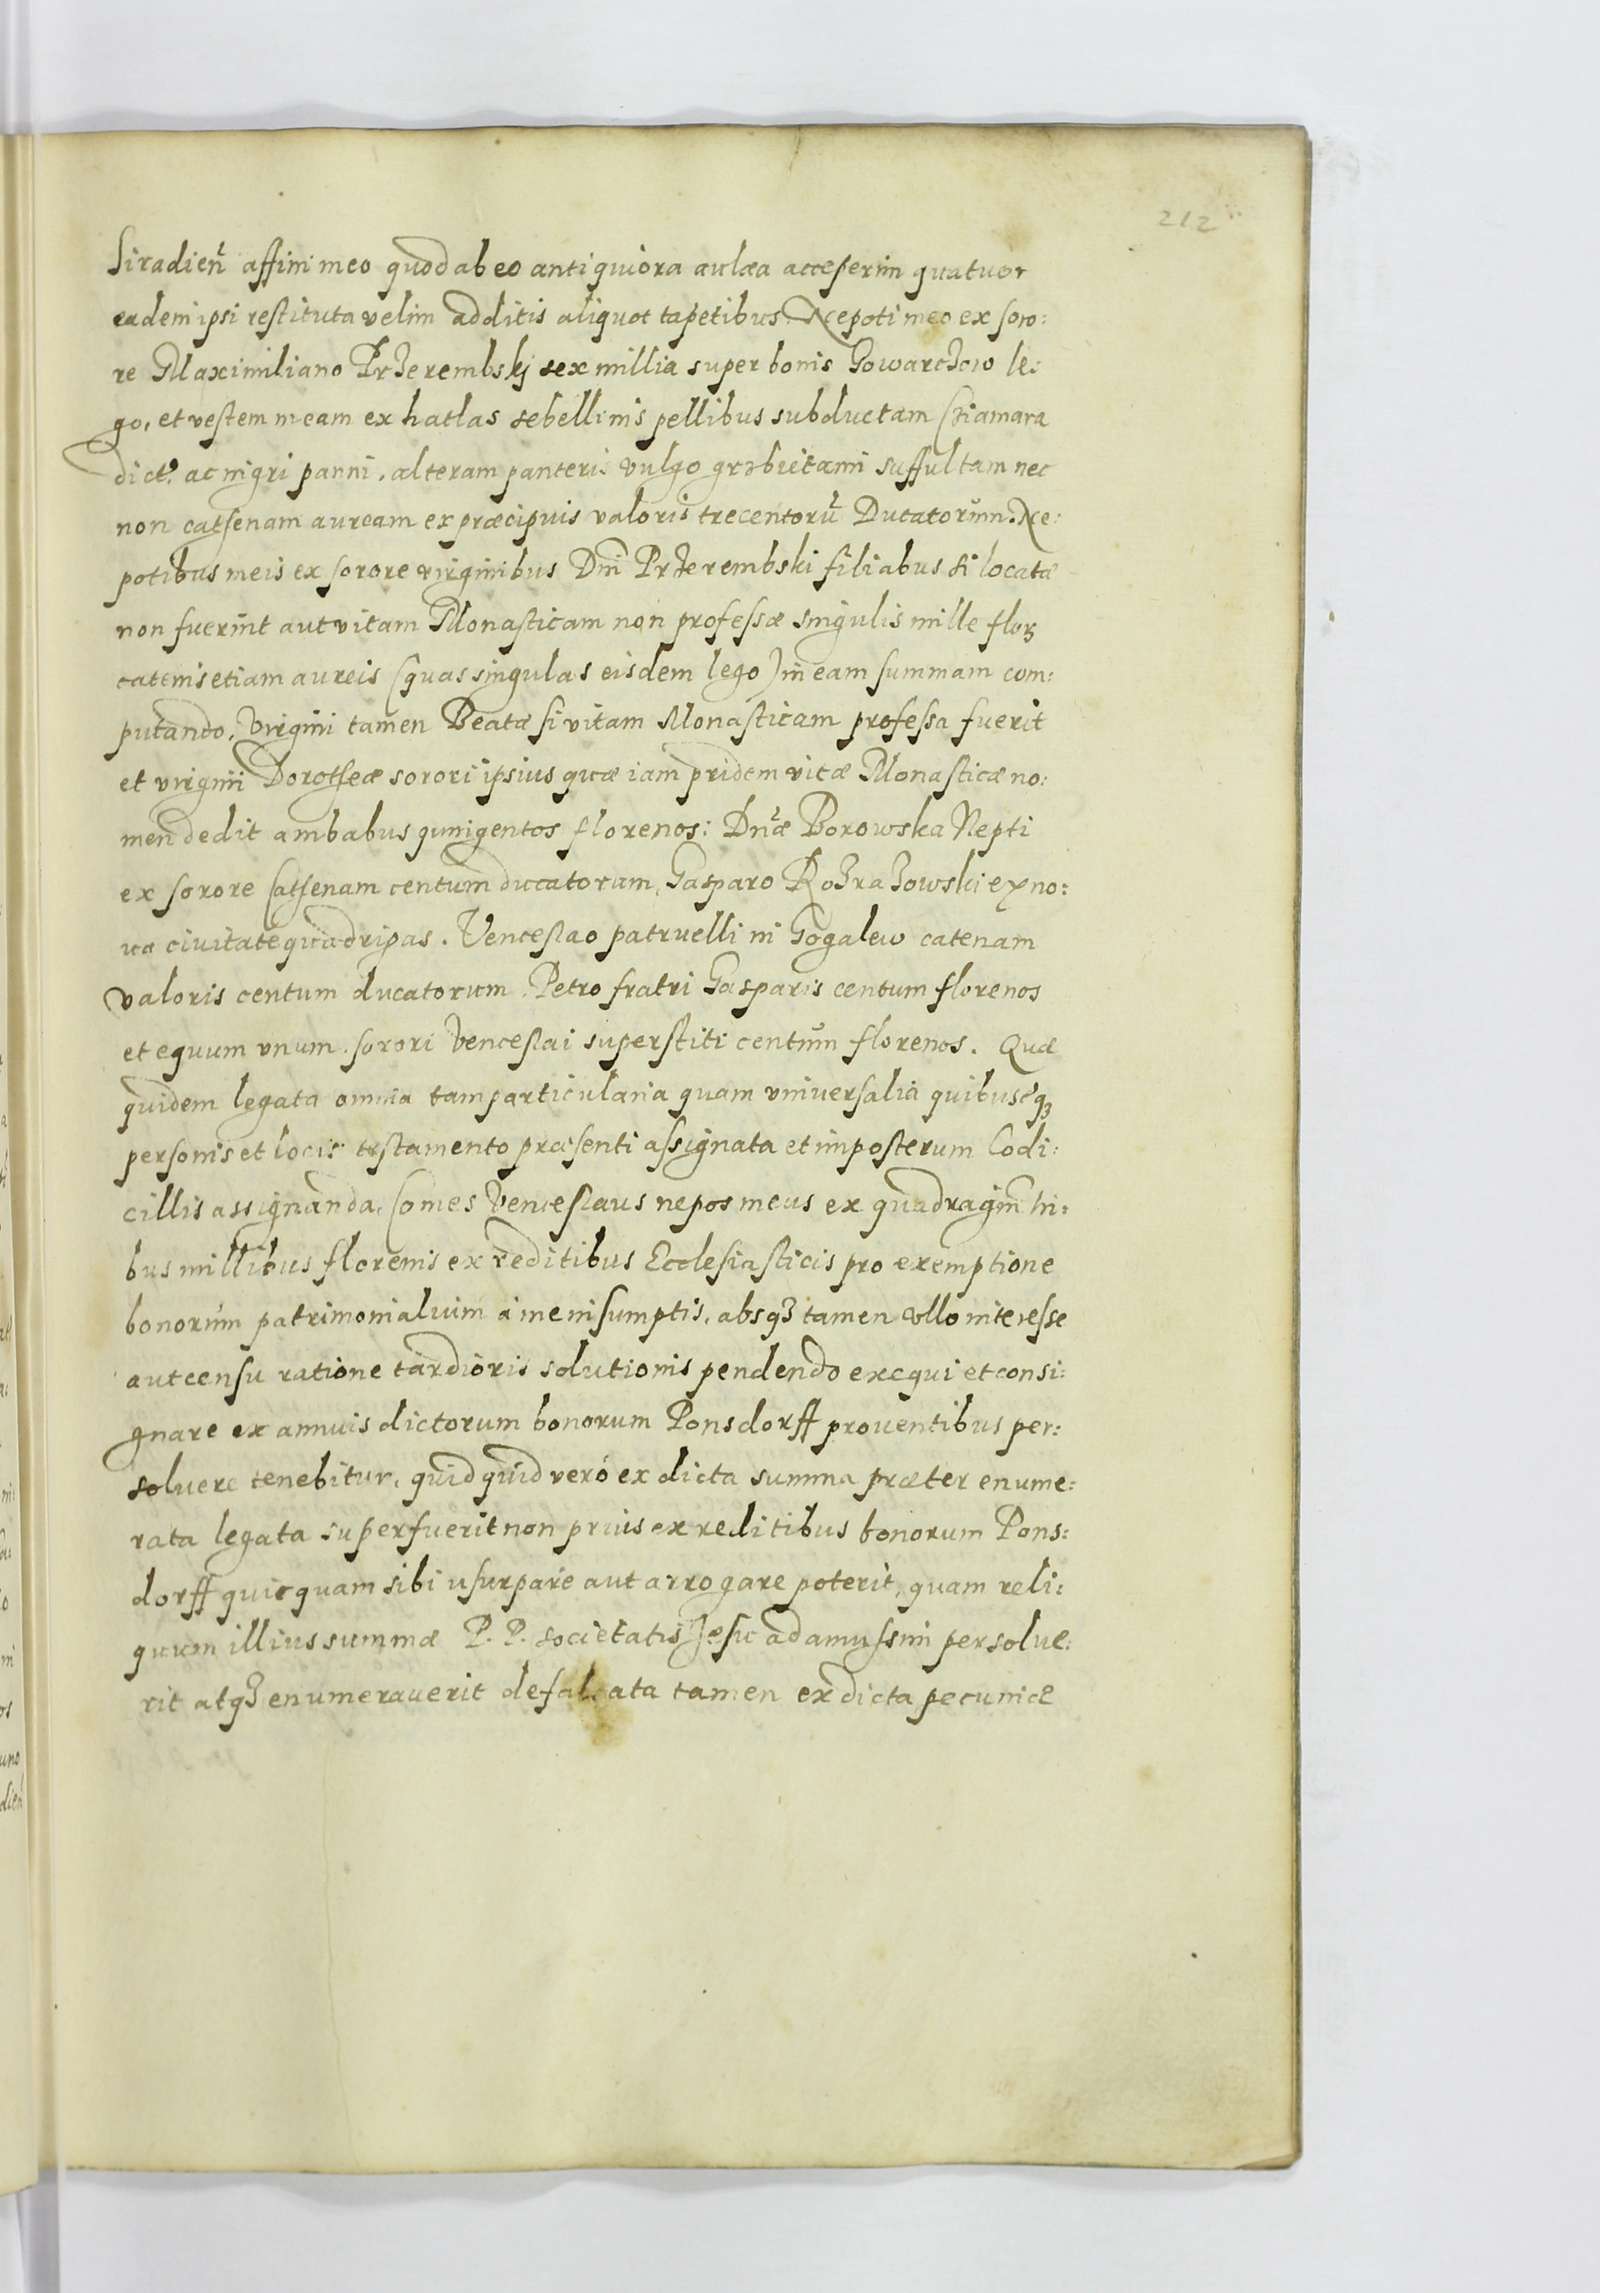 212
Siradien̄ affini meo quod ab eo antiquiora aulæa acceperim quatuor
eadem ipsi restituta velim additis aliquot tapetibus. Nepoti meo ex soro:
re Maximiliano Przerembskj sex millia super bonis Gowarczow le:
go, et vestem meam ex hatlas sebellinis pellibus subductam Cziamara
dictā ac nigri panni, alteram panteris vulgo suffultam nec
non cathenam auream ex præcipuis valoris trecentorū Ducatorum. Ne:
potibus meis ex sorore virginibus Dni Przerembski filiabus si locatæ
non fuerint aut vitam Monasticam non professæ singulis mille floꝝ
catenis etiam aureis (quas singulas eisdem lego) in eam summam com:
putando, Virgini tamen Beatæ si vitam Monasticam professa fuerit
et virgini Dorotheæ sorori ipsius quæ iam pridem vitæ Monasticæ no:
men dedit ambabus quingentos florenos: Dnæ Borowska Nepti
ex sorore Cathenam centum duccatorum, Gasparo Rozrazowski ex no:
va civitate quadripas. Venceslao patruelli in Gogalew catenam
valoris centum ducatorum. Petro fratri Gasparis centum florenos
et equum vnum. sorori Venceslai superstiti centum florenos. Quæ
quidem legata omnia tam particularia quam vniversalia quibuscqꝫ
personis et locis testamento præsenti assignata et imposterum Codi:
cillis assignanda, Comes Venceslaus nepos meus ex quadragin̄ tri:
bus millibus florenis ex reditibus Ecclesiasticis pro exemptione
bonorum patrimonialium à me insumptis, absqꝫ tamen vllo interesse
aut censu ratione tardioris solutionis pendendo exequi et consi:
gnare ex annuis dictorum bonorum Ponsdorff prouentibus per:
soluere tenebitur, quidquid verò ex dicta summa præter enume:
rata legata superfuerit non prius ex reditibus bonorum Pons:
dorff quicquam sibi usurpare aut arrogare poterit, quam reli:
quum illius summæ P. P. societatis Jesu ad amussim persolue:
rit atqꝫ enumerauerit defalcata tamen ex dicta pecuniæ